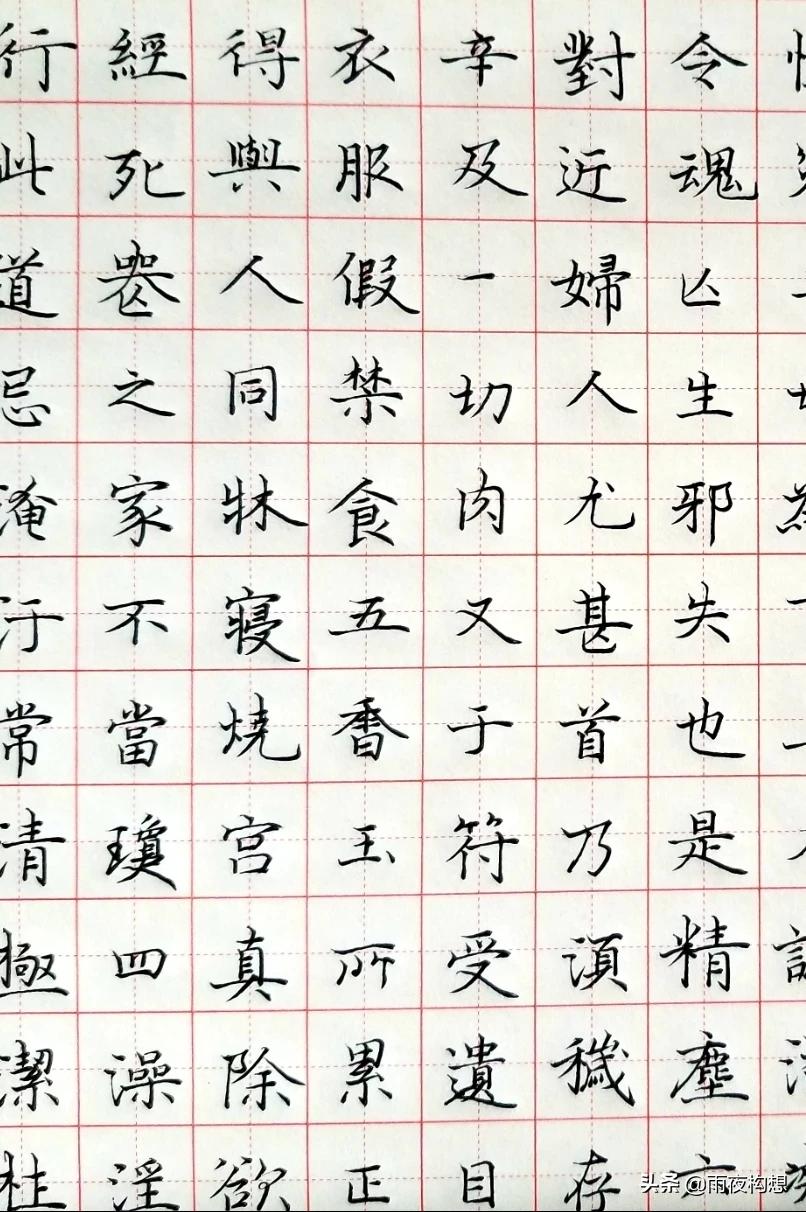 行此道忌淹汙
經死喪之家不
得與人同牀寢
衣服假禁食五
辛及一切肉又
對近婦人尤甚
令魂亾生邪失
常當燒香于首也
清瓊宮玉符乃是
極四真所受湏精
潔澡除累遺穢塵
淫欲正目存六
头条 @雨夜构想